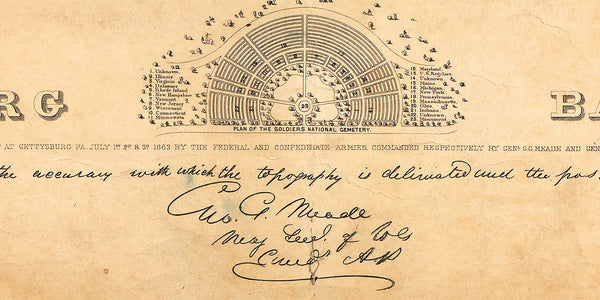 1 Unknown.
2 Illinois.
3 Virginia.
4 Delaware
5 Rhode Island
6 New Hampshire
7 Vermont
8 New Jersey
Connecticut
Minnesota.
Maryland
13 U.S. Regulars
14 Unknown.
15 Maine.
16 Michigan.
17 New York
18 Pennsylvania.
19 Massachusetts.
20 Ohio.
21 Indiana.
22 Unknown.
23 Monument
23
PLAN OF THE SOLDIERS NATIONAL CEMETERY.
RG BA
AT GETTYSBURG PA. JULY 1ST 2D & 3D 1863 BY THE FEDERAL AND CONFEDERATE ARMIES COMMANDED RESPECTIVELY BY GENL G.G. MEADE AND GEN
the accuracy with which the topography is delineated and the pos
Geo. G. Meade
Maj Genl. of Vols
Comdg A.P